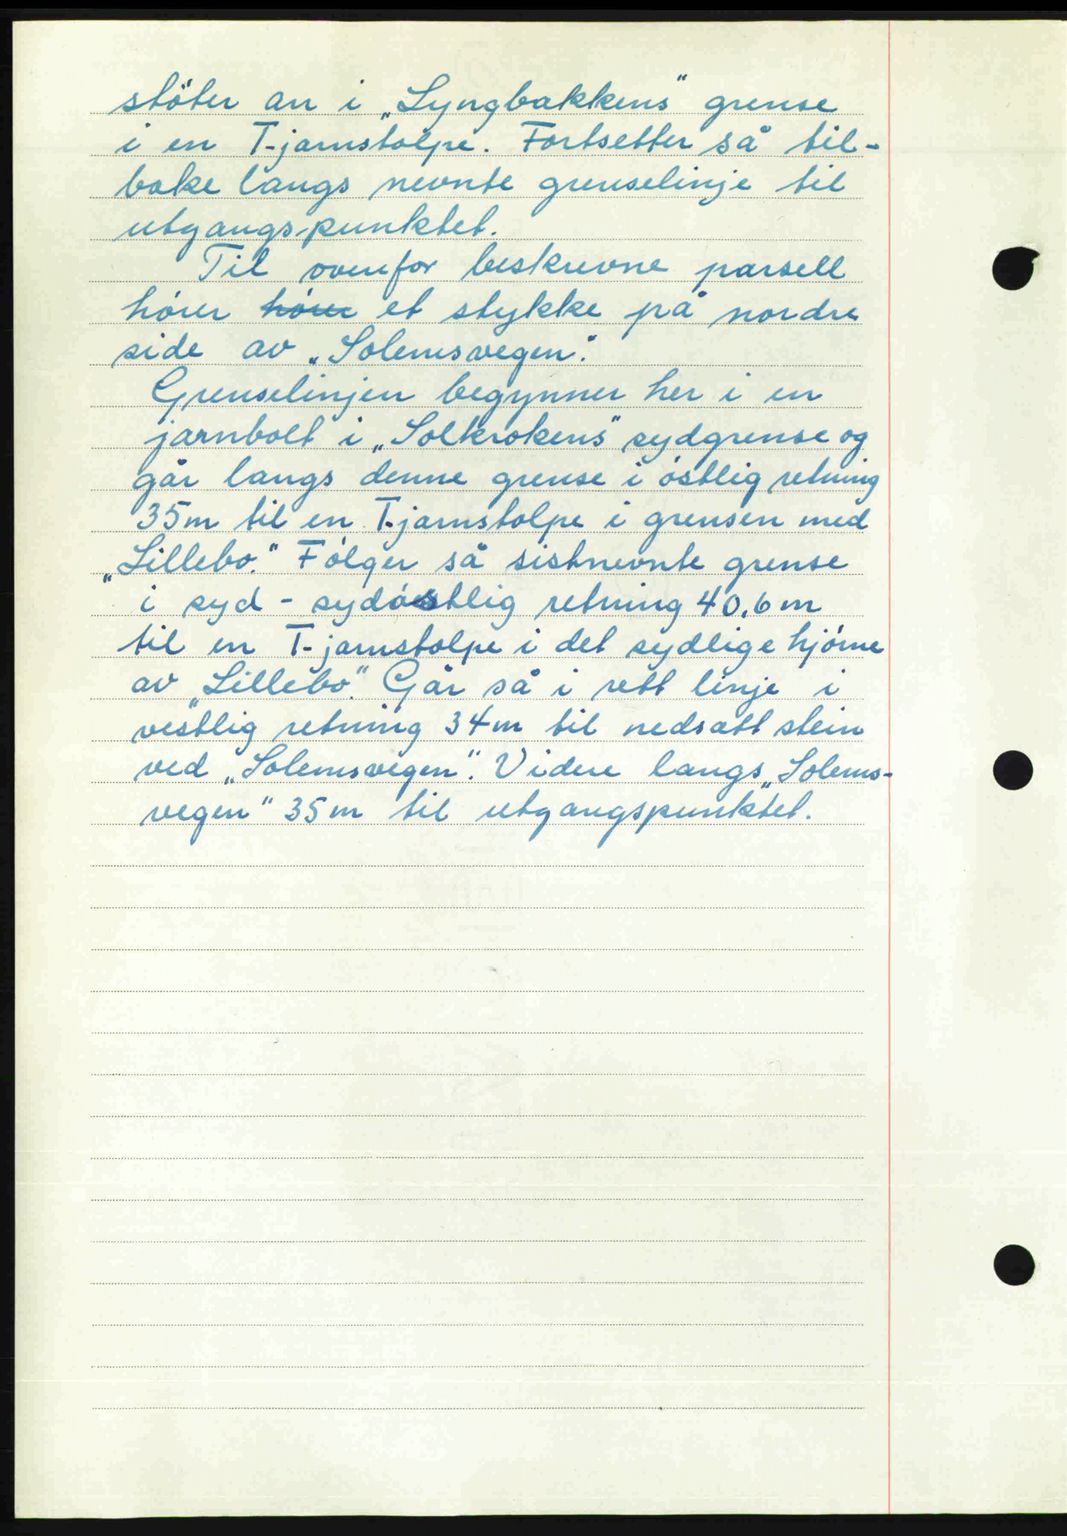 støter an i „Lyngbakkens" grense
i en T-jarnstolpe. Fortsetter så til-
bake langs nevnte grenselinje til
utgangs-punktet.
Til ovenfor beskrevne parsell
hører hører et stykke på nordre
side av „Solemsvegen".
Grenselinjen begynner her i en
jarnbolt i „Solkrokens" sydgrense og
går langs denne grense i østlig retning
35m til en T-jarnstolpe i grensen med
„Lillebo." Følger så sistnevnte grense
i syd - sydøstlig retning 40,6 m
til en T-jarnstolpe i det sydlige hjørne
av „Lillebo." Går så i rett linje i
vestlig retning 34m til nedsatt stein
ved „Solemsvegen". Videre langs „Solems-
vegen" 35m til utgangspunktet.